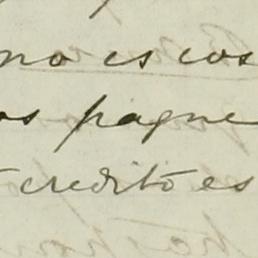 no es cos
os pague
credito es